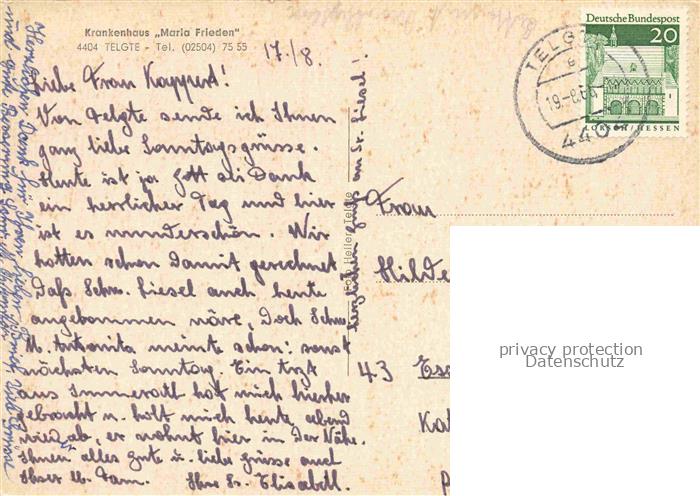 Krankenhaus „Maria Frieden"
4404 TELGTE - Tel. (02504) 75 55
17./8.
Liebe Frau Kappert!
Von Telgte sende ich Ihnen
ganz liebe Sonntagsgrüsse.
Heute ist ja Gott sei Dank
ein herrlicher Tag und hier
ist es wunderschön. Wir
hatten schon damit gerechnet
Daß Schw. Liesel auch heute
angekommen wäre, Doch Schw.
M. Antonita meinte schon: sonst
nächsten Sonntag. Ein Arzt
aus Immerath hat mich hierher
gebracht u. holt mich heute abend
wieder ab, er wohnt hier in der Nähe.
Ihnen alles gute u. liebe grüsse auch
Ihrer Ihre Sr. Elisabeth.
Herzlicher Dank für Ihren lieben Brief
und gute Besserung
herzlichen Gruß an Sr. Liesel!
Foto Heller, Telgte
Deutsche Bundespost
20
LORSCH / HESSEN
TELGTE
19.-8.68
4404
Frau
Hilde
43 Ess
privacy protection
Datenschutz